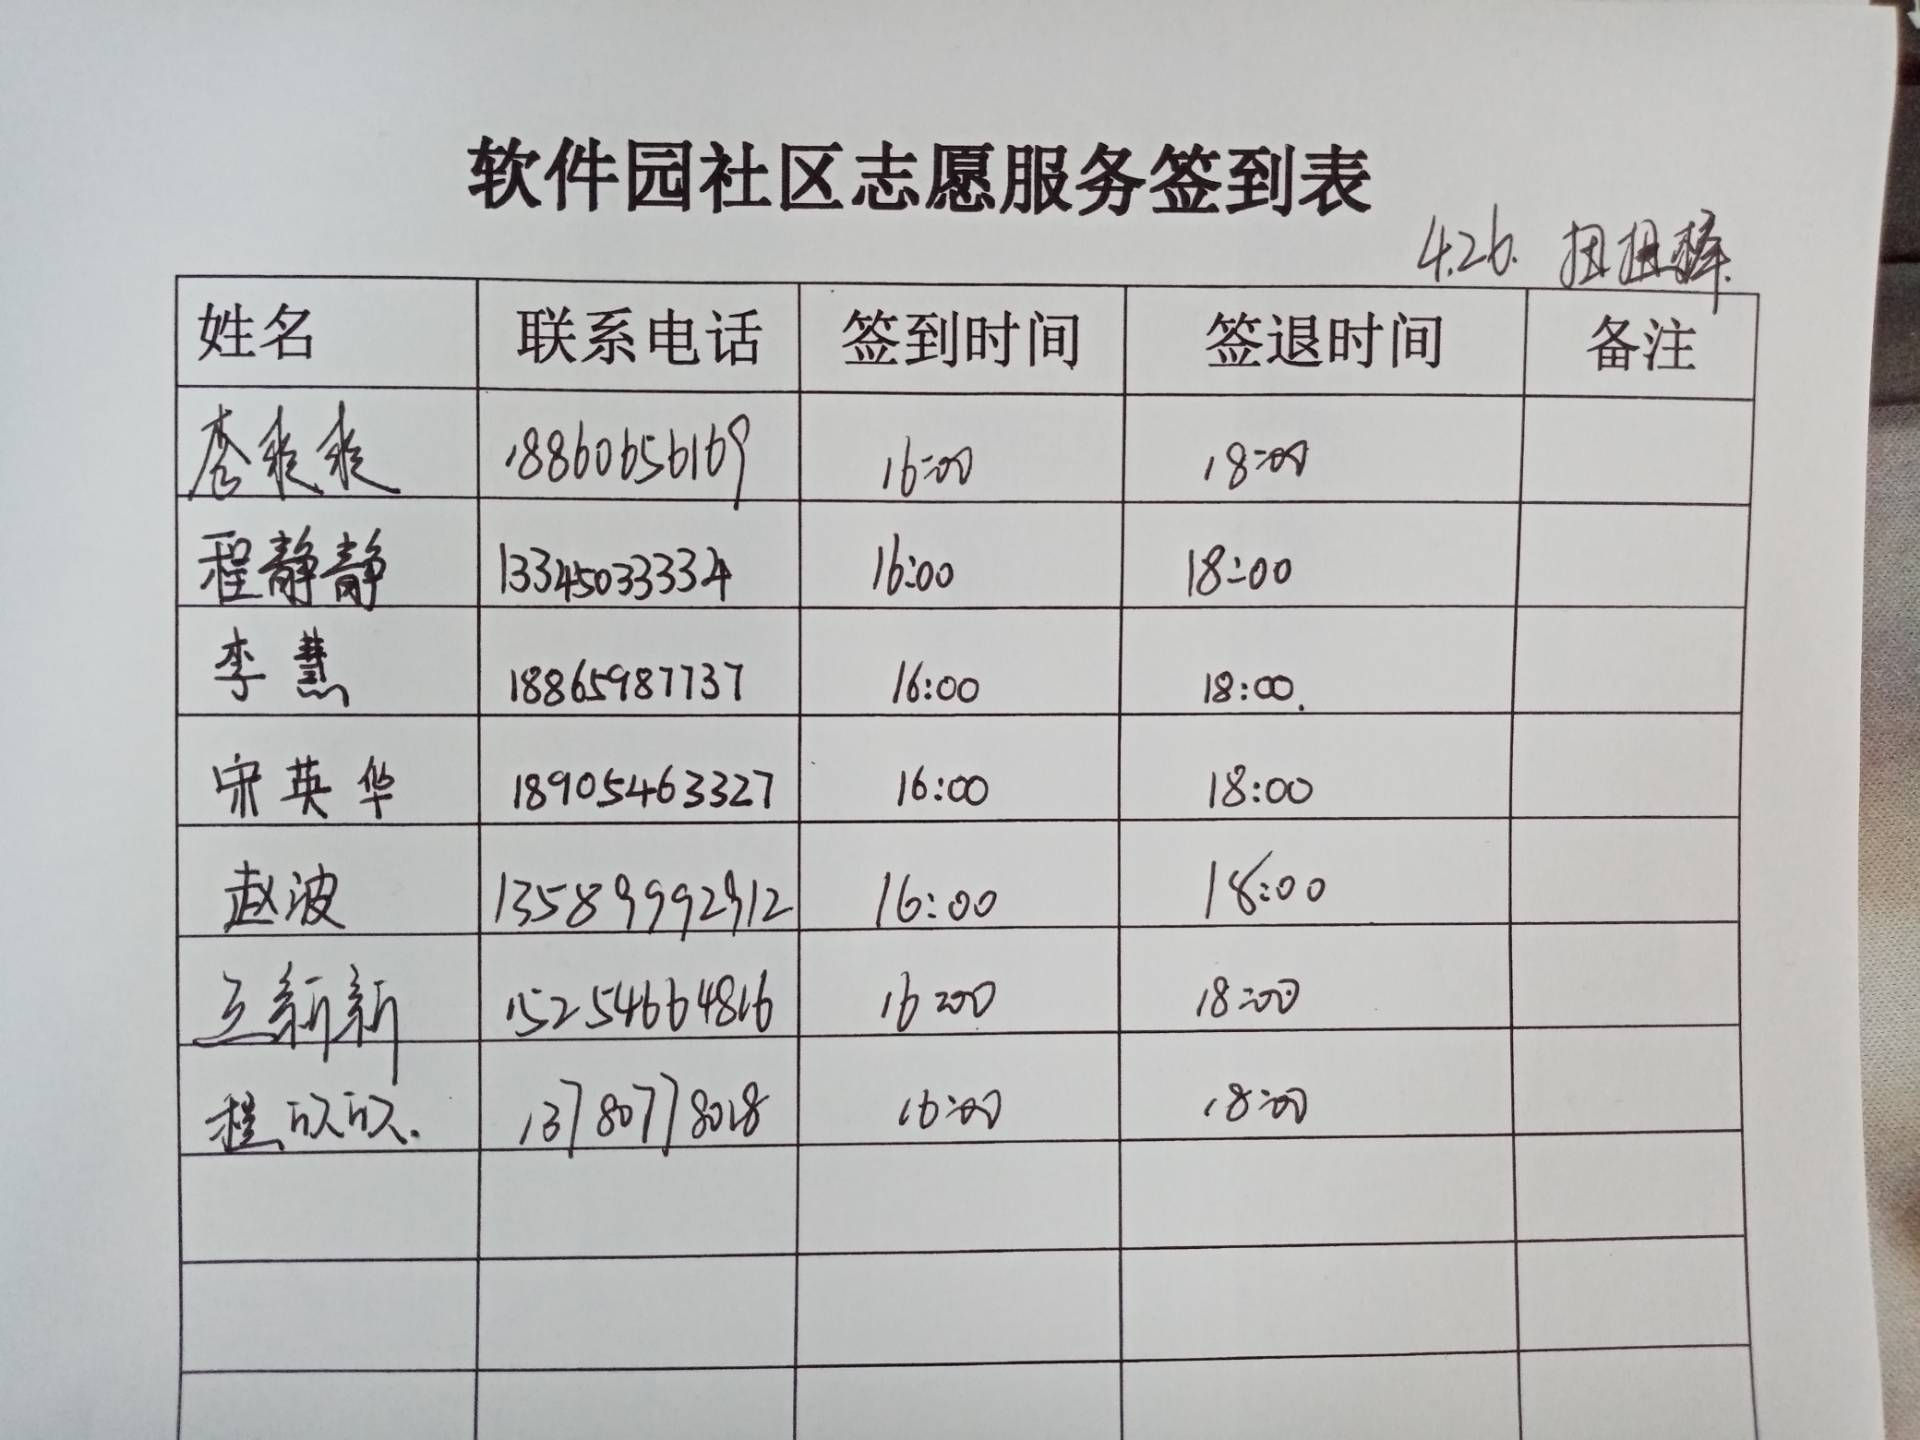 软件园社区志愿服务签到表
4.26. 扭扭棒.
姓名 联系电话 签到时间 签退时间 备注
18860656169 16:00 18:00
程静静 13345033334 16:00 18:00
李慧 18865987737 16:00 18:00.
宋英华 18905463327 16:00 18:00
赵波 13589992912 16:00 18:00
王新新 15254664816 16:00 18:00
程欣欣. 13780778018 16:00 18:00